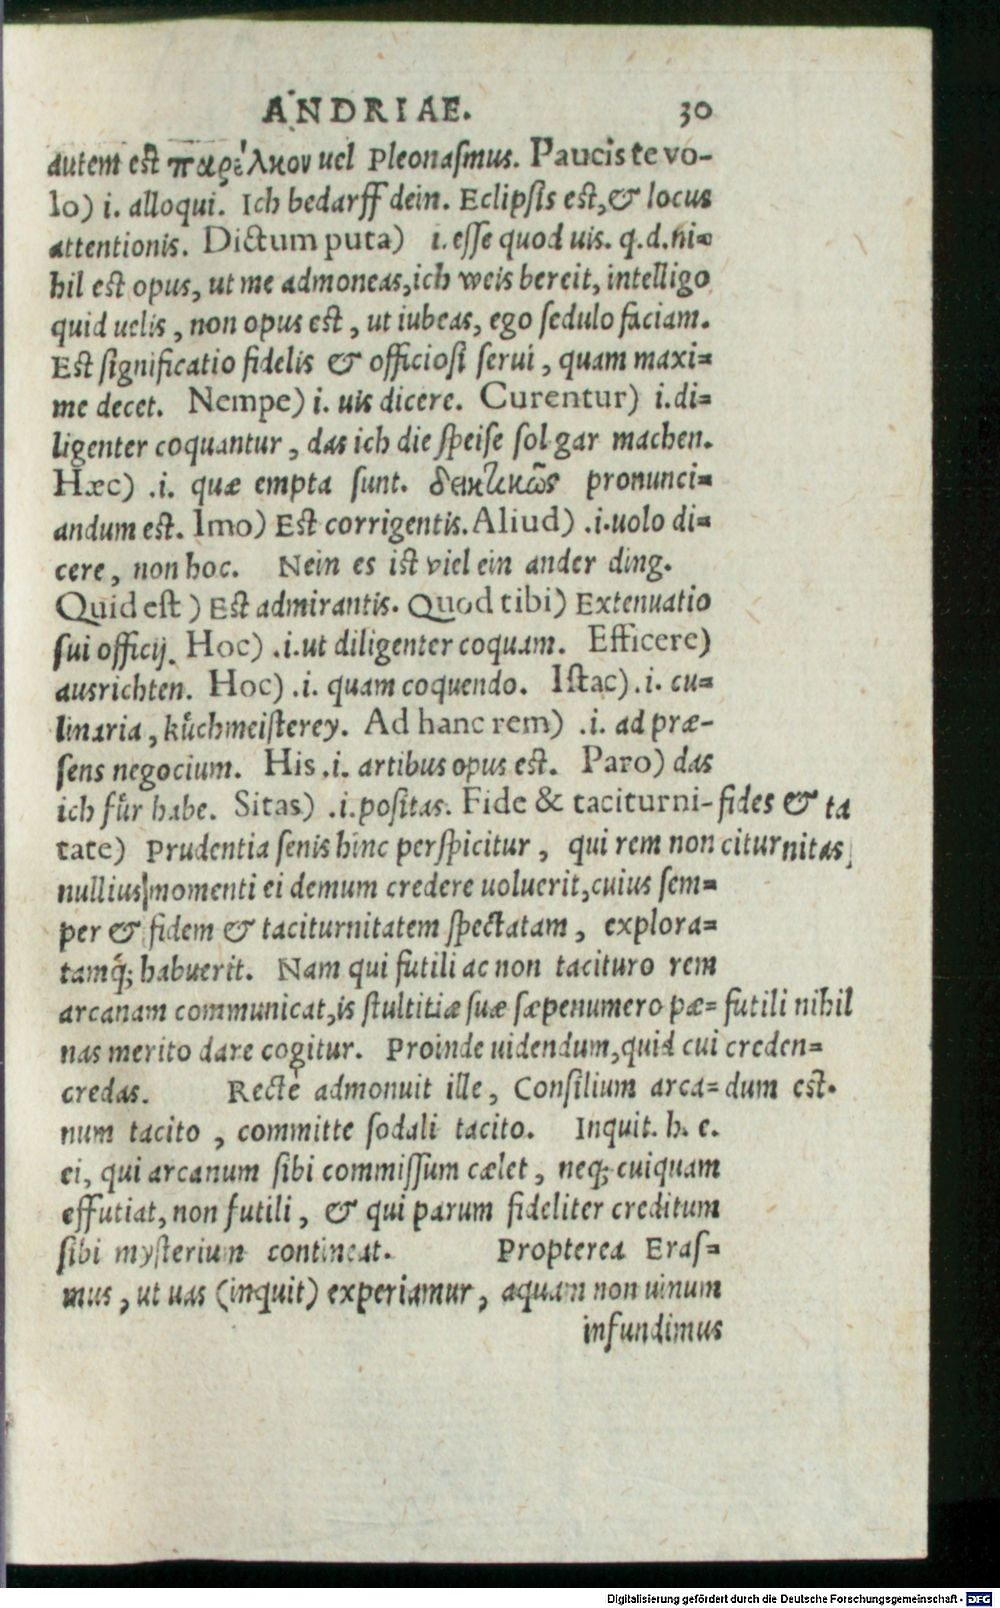 ANDRIAE. 30
autem est παρέλκον uel Pleonaſmus. Paucis te vo-
lo) i. alloqui. Ich bedarff dein. Eclipſis est, & locus
attentionis. Dictum puta) i. eſſe quod uis. q. d. ni=
hil est opus, ut me admoneas, ich weis bereit, intelligo
quid uelis, non opus est, ut iubeas, ego ſedulo faciam.
Est ſignificatio fidelis & officioſi ſerui, quam maxi=
me decet. Nempe) i. uis dicere. Curentur) i. di=
ligenter coquantur, das ich die ſpeiſe ſol gar machen.
Hæc) .i. quæ empta ſunt. δεικτικῶς pronunci=
andum est. Imo) Est corrigentis. Aliud) .i. uolo di=
cere, non hoc. Nein es iſt viel ein ander ding.
Quid eſt) Est admirantis. Quod tibi) Extenuatio
ſui officij. Hoc) .i. ut diligenter coquam. Efficere)
ausrichten. Hoc) .i. quam coquendo. Iſtac) .i. cu=
linaria, kuͤchmeiſterey. Ad hanc rem) .i. ad præ-
ſens negocium. His .i. artibus opus est. Paro) das
ich fuͤr habe. Sitas) .i. poſitas. Fide & taciturni- fides & ta
tate) Prudentia ſenis hinc perſpicitur, qui rem non citurnitas
nullius momenti ei demum credere uoluerit, cuius ſem=
per & fidem & taciturnitatem ſpectatam, explora=
tamq́; habuerit. Nam qui futili ac non tacituro rem
arcanam communicat, is ſtultitiæ ſuæ ſæpenumero pæ= futili nihil
nas merito dare cogitur. Proinde uidendum, quid cui creden=
credas. Rectè admonuit ille, Conſilium arca= dum est.
num tacito, committe ſodali tacito. Inquit. h. e.
ei, qui arcanum ſibi commiſſum cælet, neq; cuiquam
effutiat, non futili, & qui parum fideliter creditum
ſibi myſterium contineat. Propterea Eraſ=
mus, ut uas (inquit) experiamur, aquam non uinum
infundimus
Digitalisierung gefördert durch die Deutsche Forschungsgemeinschaft - DFG